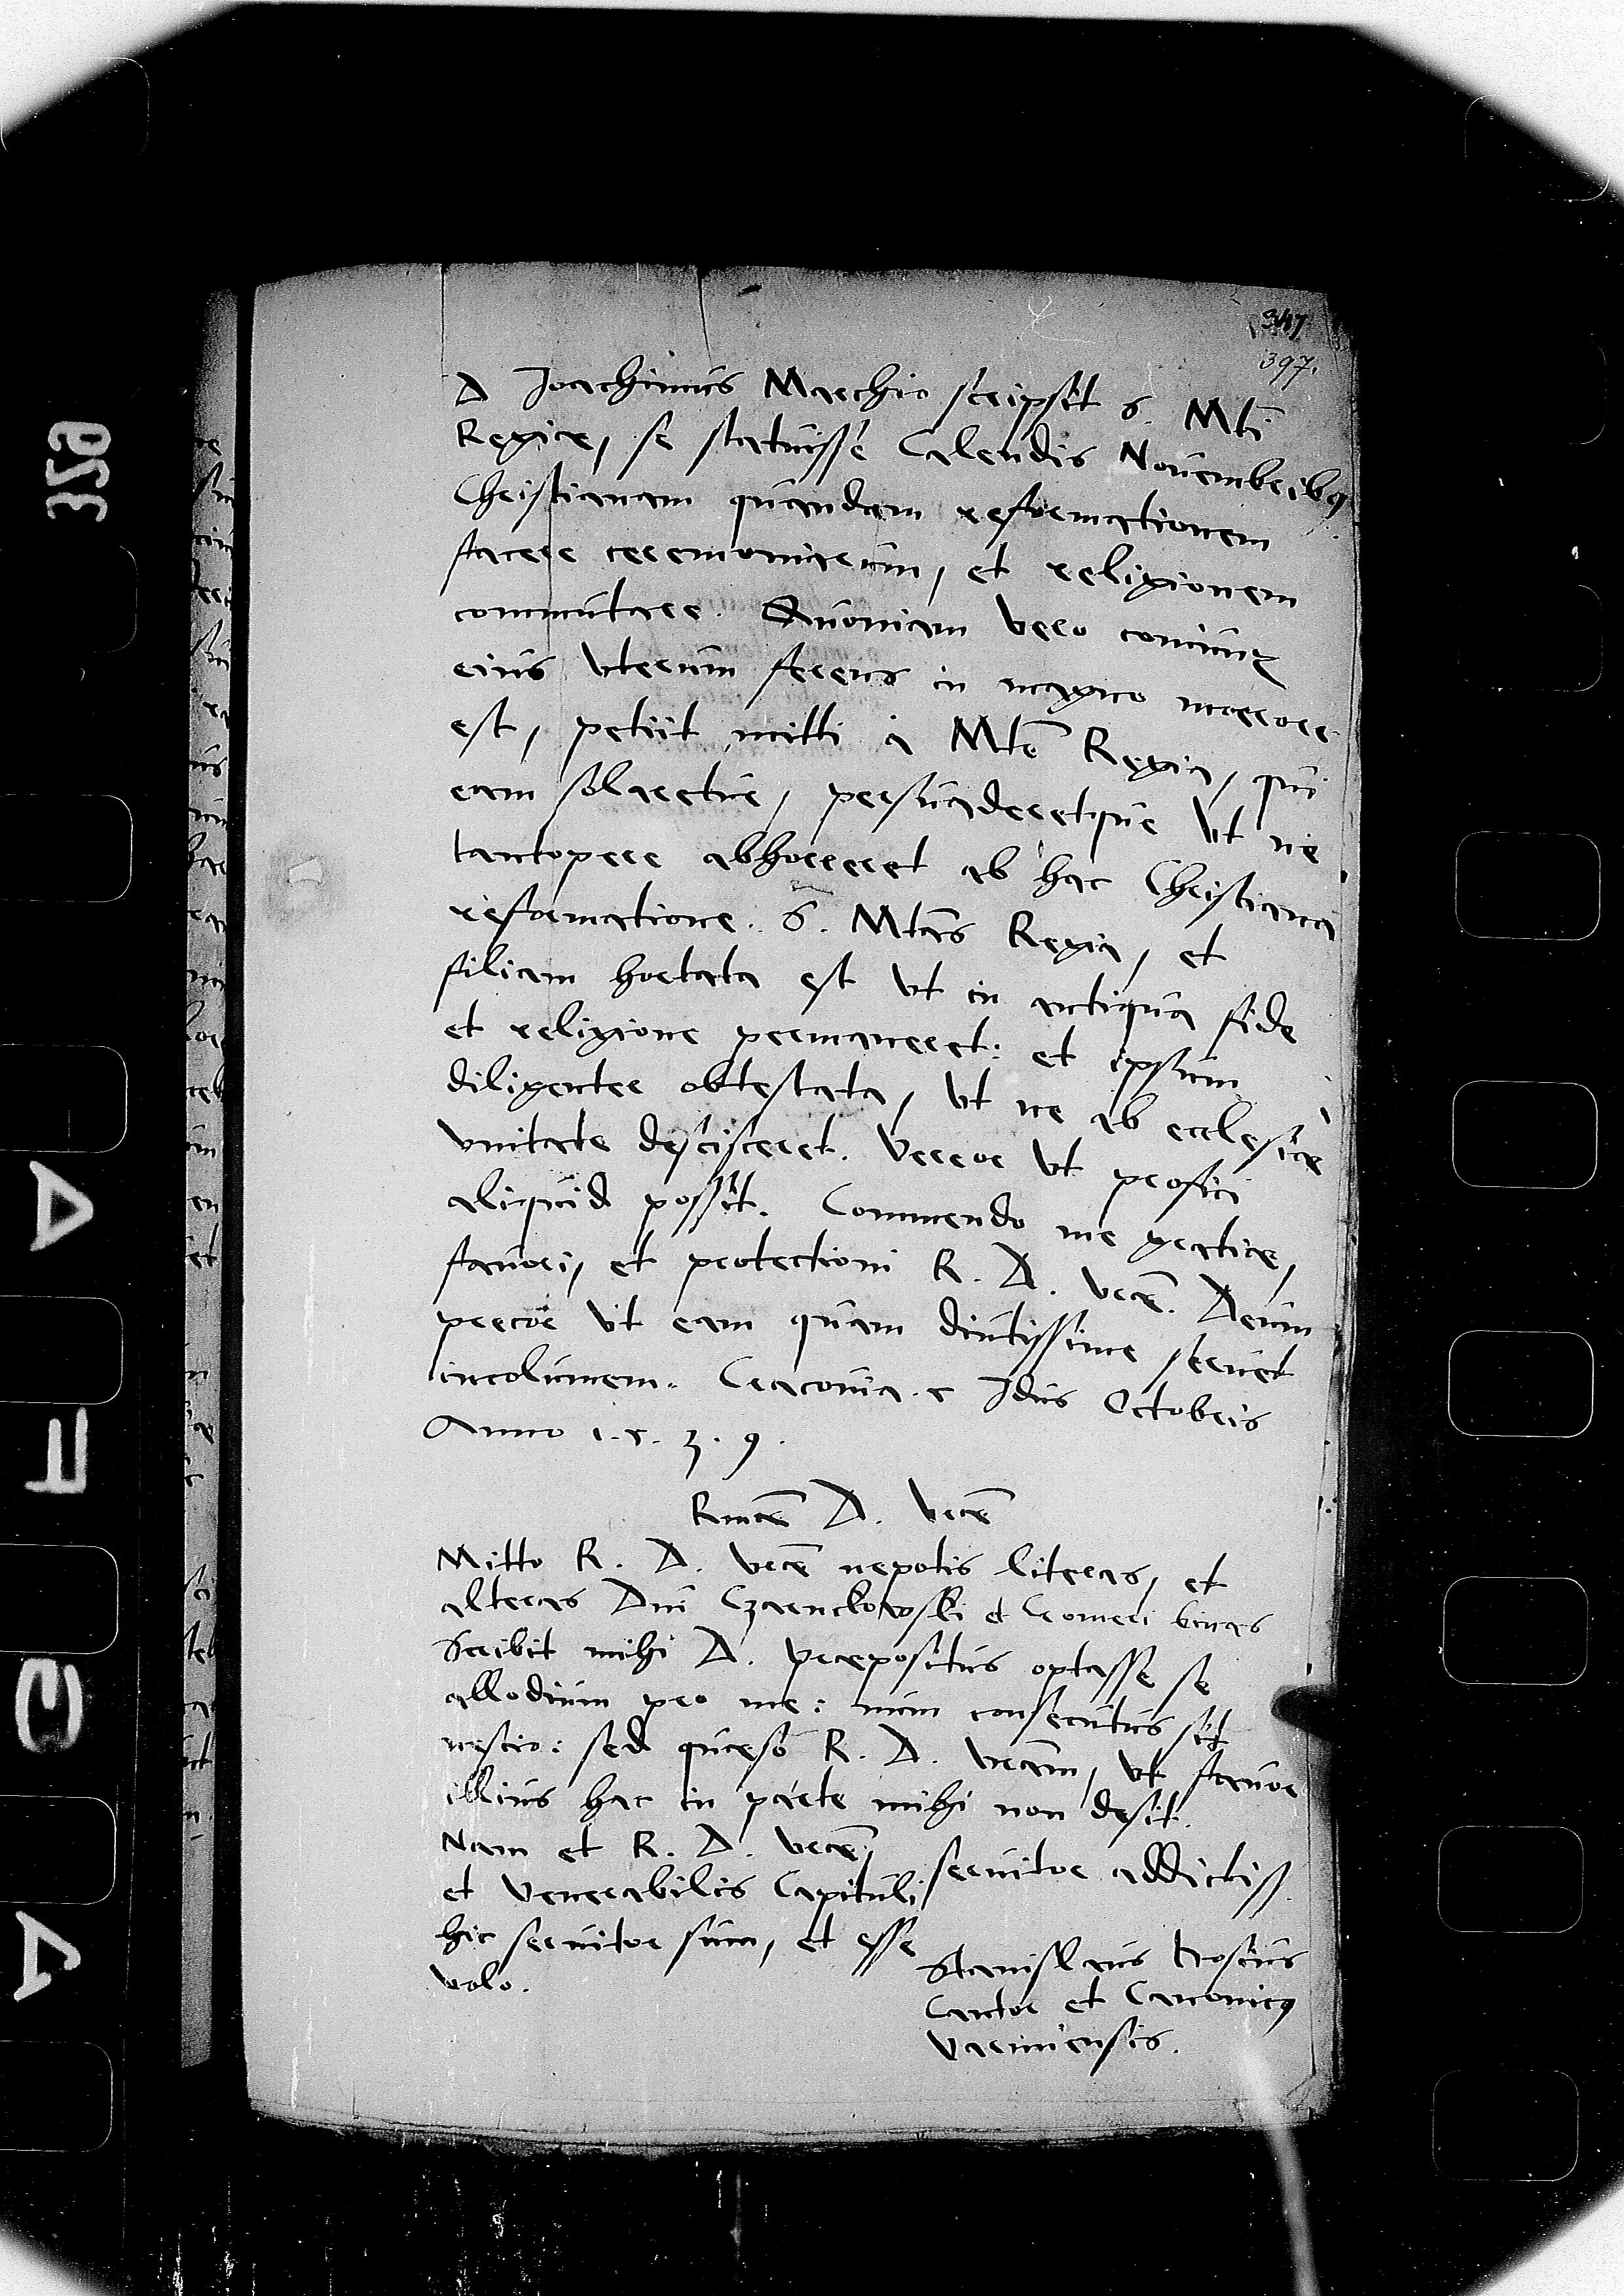 347
397.
D Joachimus Marchio scripsit S. Mti
Regiae, se statuisse Calendis Novembribq
Christianam quandam reformationem
facere ceremoniarum, et religionem
commutare. Quoniam vero coniunx
eius uterum ferens in magno moerore
est, petiit mitti a Mte Regia, qui
eam solaretur, persuaderetque ut ne
tantopere abhorreret ab hac Christiana
reformatione. S. Mtas Regia, et
filiam hortata est ut in antiqua fide
et religione permaneret: et ipsum
diligenter obtestata, ut ne ab ecclesiae
unitate descisceret. Vereor ut profici
aliquid possit. Commendo me gratiae,
favori, et protectioni R. D. vrae. Deum
precor ut eam quam diutissime servet
incolumem. Cracovia. Idus Octobris
Anno 1.5.3.9.
Rmae D. vrae
Mitto R. D. vrae nepotis literas, et
alteras Dni Czarnckowski et Cromeri binas
Scribit mihi D. Praepositus optasse se
allodium pro me: num consecutus sit
nescio: sed quaeso R. D. vram, ut favor
illius hac in parte mihi non desit.
Nam et R. D. vrae
et Venerabilis Capituli
hic servitor sum, et esse
volo.
servitor addictiss.
Stanislaus Hosius
Cantor et Canonicq
Varmiensis.
329